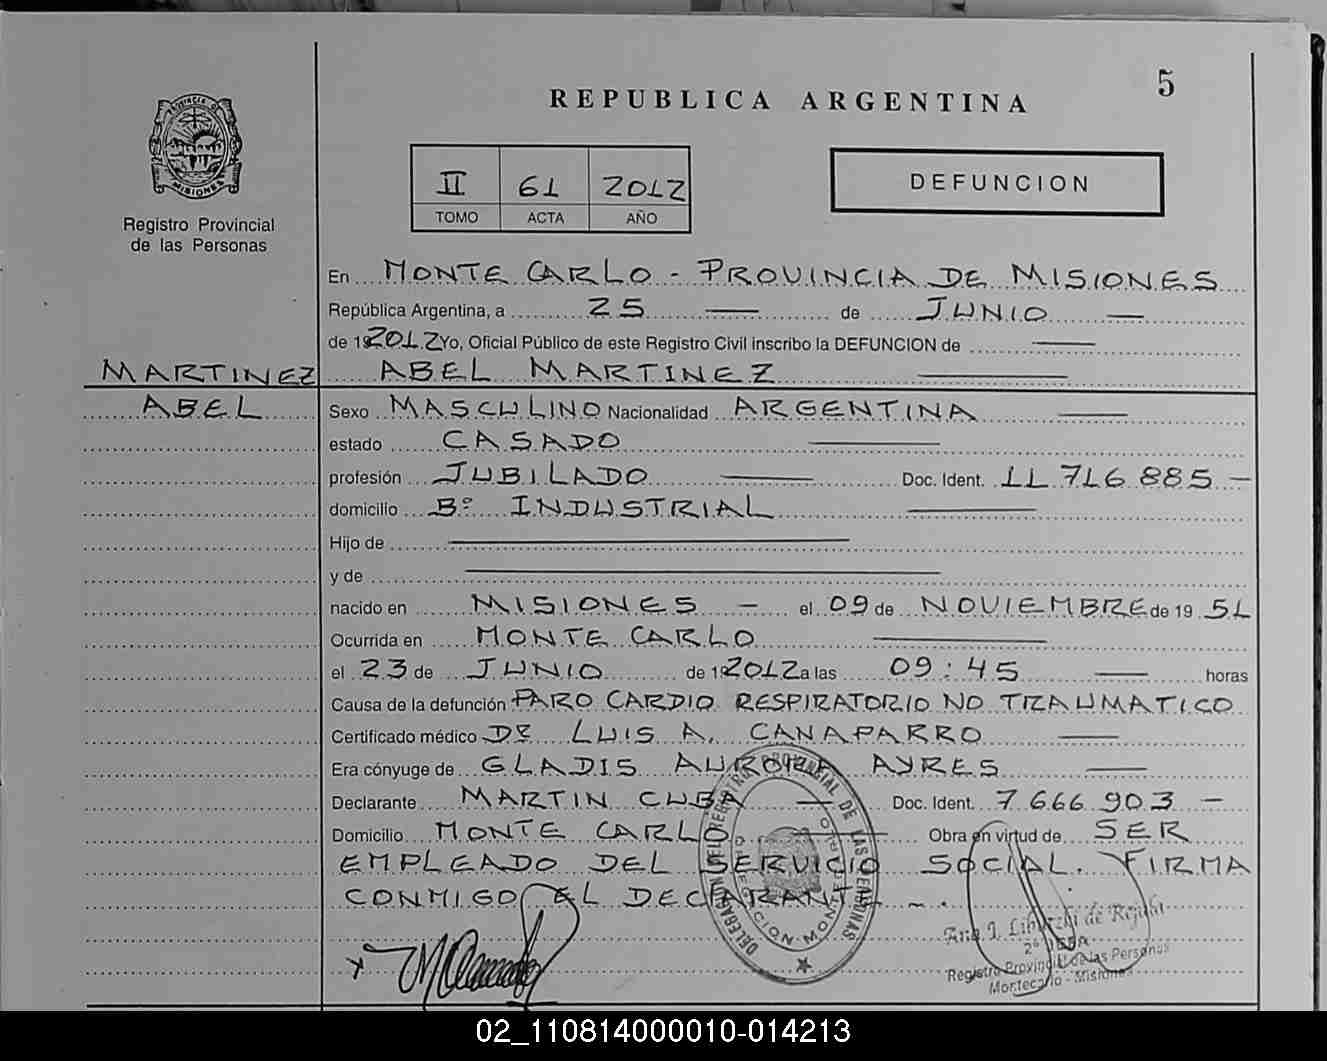 5
REPUBLICA ARGENTINA
PROVINCIA DE
MISIONES
Registro Provincial
de las Personas
II 61 2012
TOMO ACTA AÑO
DEFUNCION
En MONTE CARLO - PROVINCIA DE MISIONES
República Argentina, a 25 — de JUNIO —
de 2012 Yo, Oficial Público de este Registro Civil inscribo la DEFUNCION de —
MARTINEZ ABEL MARTINEZ —
ABEL Sexo MASCULINO Nacionalidad ARGENTINA —
estado CASADO —
profesión JUBILADO — Doc. Ident. 11 716 885 -
domicilio Bº INDUSTRIAL —
Hijo de —
y de —
nacido en MISIONES - el 09 de NOVIEMBRE de 19 51
Ocurrida en MONTE CARLO —
el 23 de JUNIO de 2012 a las 09:45 — horas
Causa de la defunción PARO CARDIO RESPIRATORIO NO TRAUMATICO
Certificado médico DR LUIS A. CANAPARRO —
Era cónyuge de GLADIS AURORA AYRES —
Declarante MARTIN CUBA — Doc. Ident. 7 666 903 -
Domicilio MONTE CARLO — Obra en virtud de SER
EMPLEADO DEL SERVICIO SOCIAL. FIRMA
CONMIGO EL DECLARANTE -.
DELEGACION DEL REGISTRO PROVINCIAL DE LAS PERSONAS
Ana I. de
Registro Provincial de las Personas
Montecarlo - Misiones
02_110814000010-014213